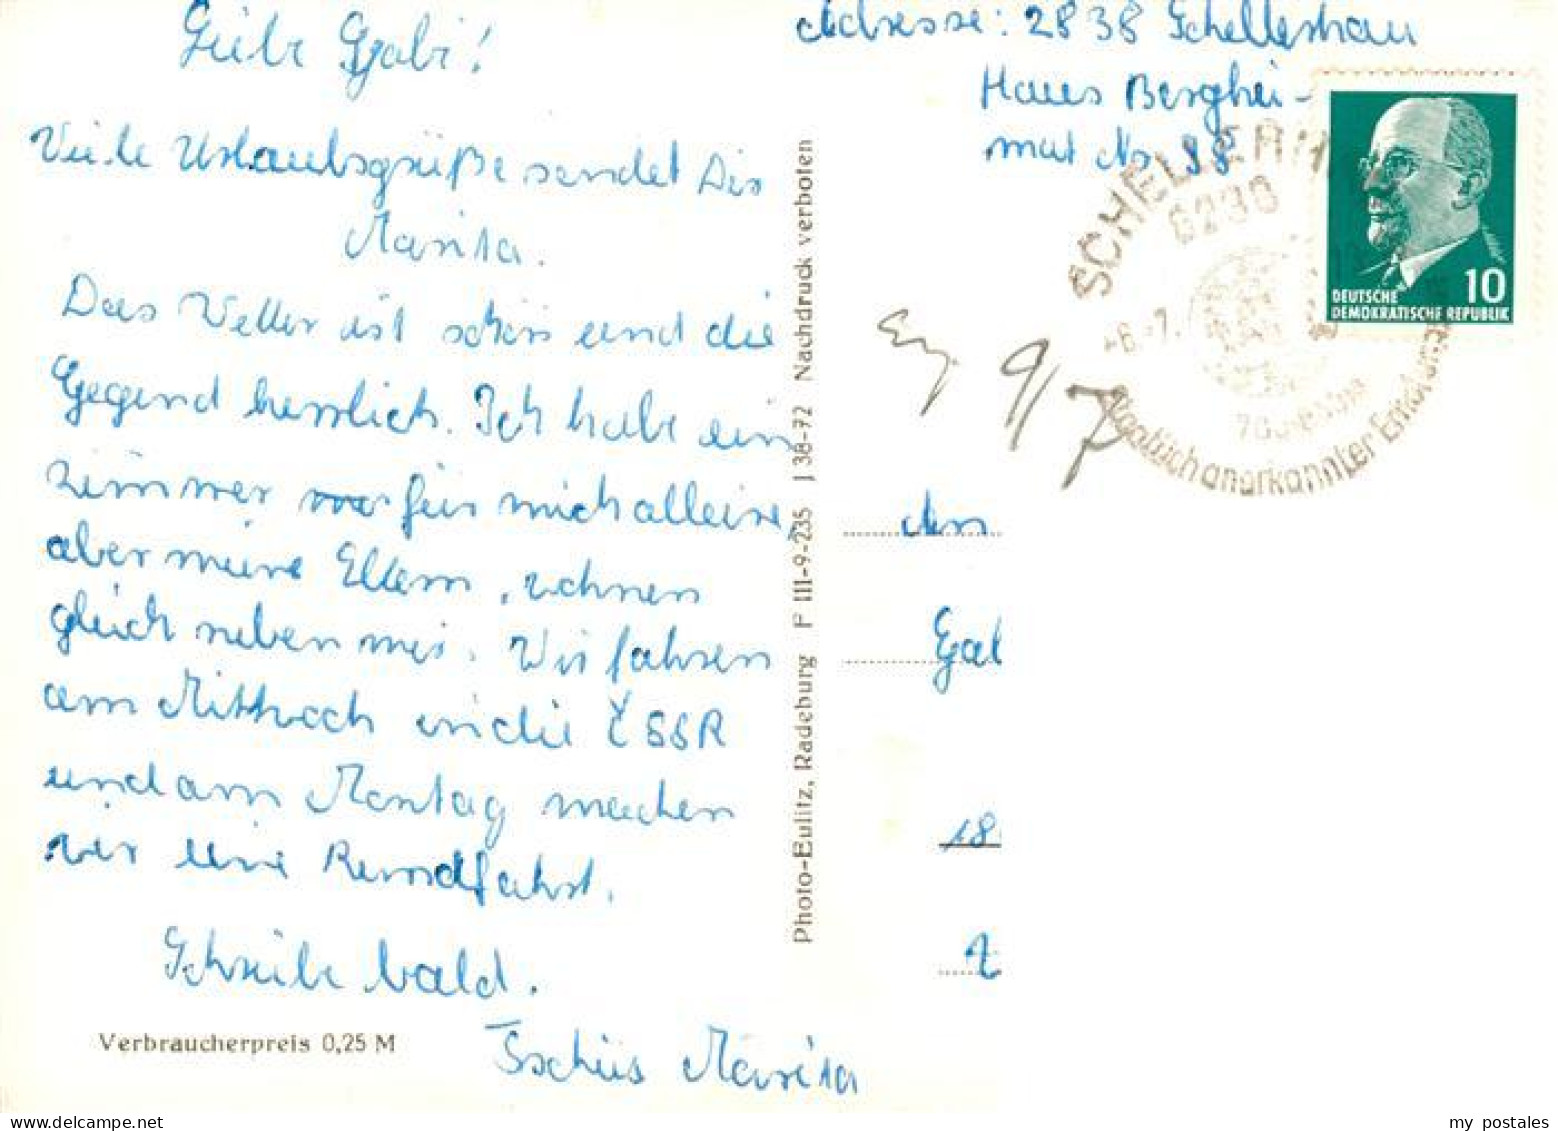 Liebe Gabi!
Viele Urlaubsgrüße sendet Dir
Marita.
Das Wetter ist schön und die
Gegend herrlich. Ich habe ein
Zimmer für mich alleine,
aber meine Eltern, wohnen
gleich neben mir. Wir fahren
am Mittwoch in die ČSSR
und am Montag machen
wir eine Rundfahrt.
Schreibe bald.
Tschüs Marita
Verbraucherpreis 0,25 M
Photo-Eulitz, Radeburg P III-9-235 J 38-72 Nachdruck verboten
Adresse: 2838 Schellerhau
Haus Berghei-
mat Nr. 98
SCHELLERH
8238
-6.-7.
700-800m
Staatlich anerkannter Erholungs
10
DEUTSCHE
DEMOKRATISCHE REPUBLIK
9/7
An
Gab
18
my postales